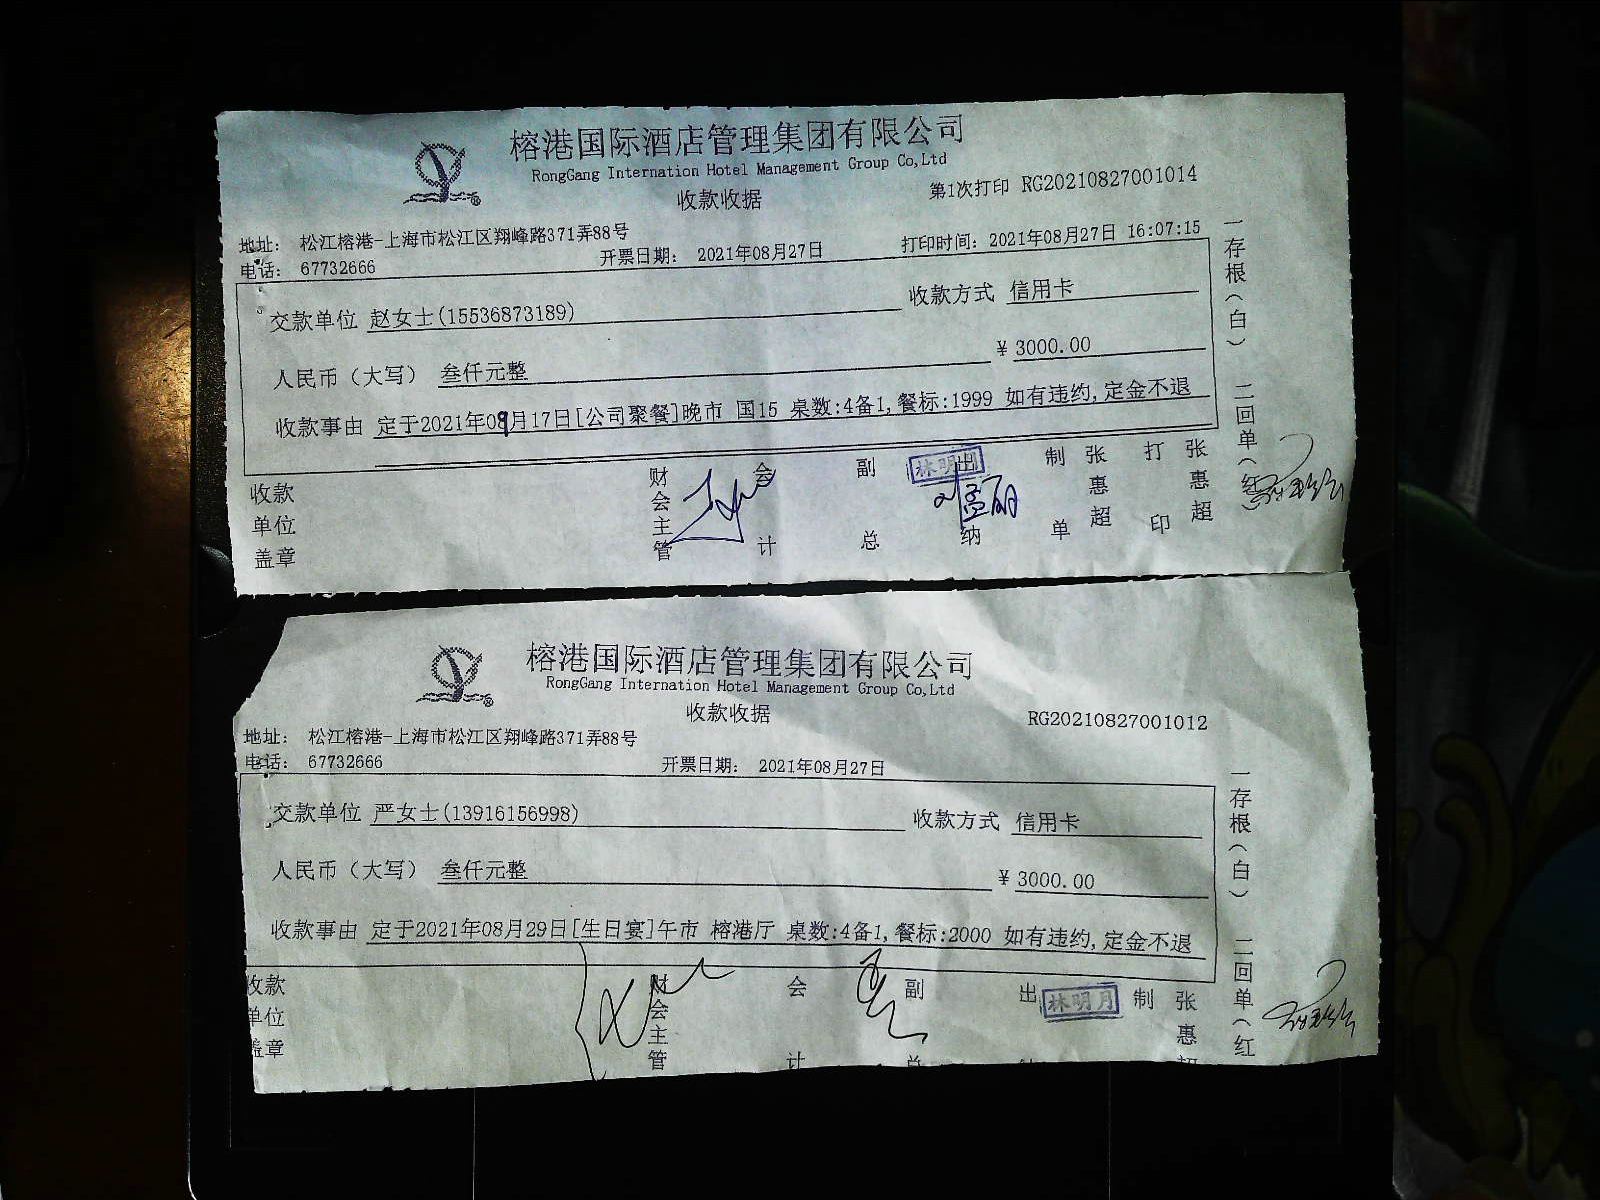 榕港国际酒店管理集团有限公司
RongGang Internation Hotel Management Group Co,Ltd
收款收据
第1次打印 RG20210827001014
地址： 松江榕港-上海市松江区翔峰路371弄88号
电话： 67732666 开票日期： 2021年08月27日 打印时间：2021年08月27日 16:07:15
交款单位 赵女士(15536873189) 收款方式 信用卡
人民币（大写） 叁仟元整 ¥ 3000.00
收款事由 定于2021年09月17日[公司聚餐]晚市 国15 桌数:4备1,餐标:1999 如有违约,定金不退
收款单位盖章 财会主管 会计 副总 出纳 林明月 制单 张惠超 打印 张惠超
一存根（白） 二回单（红）
榕港国际酒店管理集团有限公司
RongGang Internation Hotel Management Group Co,Ltd
收款收据
RG20210827001012
地址： 松江榕港-上海市松江区翔峰路371弄88号
电话： 67732666 开票日期： 2021年08月27日
交款单位 严女士(13916156998) 收款方式 信用卡
人民币（大写） 叁仟元整 ¥ 3000.00
收款事由 定于2021年08月29日[生日宴]午市 榕港厅 桌数:4备1,餐标:2000 如有违约,定金不退
收款单位盖章 财会主管 会计 副总 出 林明月 制 张惠
一存根（白） 二回单（红